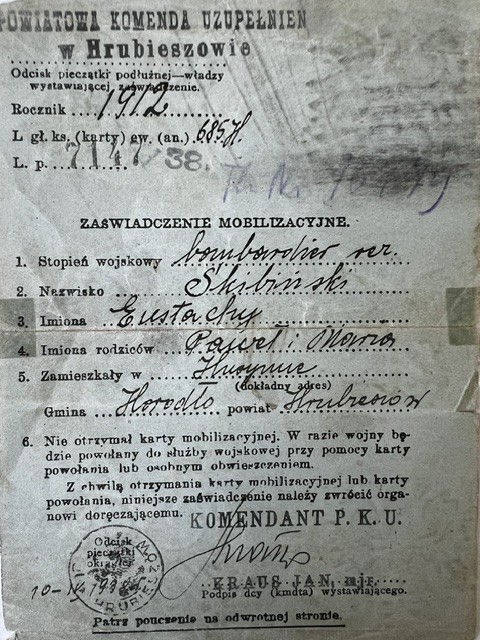 POWIATOWA KOMENDA UZUPEŁNIEŃ
w Hrubieszowie
Odcisk pieczątki podłużnej—władzy
wystawiającej zaświadczenie.
Rocznik 1912
L gł. ks. (karty) ew. (an.) 685/H.
L. p. 7147/38.
ZAŚWIADCZENIE MOBILIZACYJNE.
1. Stopień wojskowy bombardier rez.
2. Nazwisko Skibiński
3. Imiona Eustachy
4. Imiona rodziców Paweł i Maria
5. Zamieszkały w Husynne
(dokładny adres)
Gmina Horodło powiat Hrubieszów
6. Nie otrzymał karty mobilizacyjnej. W razie wojny bę-
dzie powołany do służby wojskowej przy pomocy karty
powołania lub osobnym obwieszczeniem.
Z chwilą otrzymania karty mobilizacyjnej lub karty
powołania, niniejsze zaświadczenie należy zwrócić orga-
nowi doręczającemu.
KOMENDANT P. K. U.
Odcisk
pieczątki
okrągłej
KRAUS JAN, mjr.
Podpis dcy (kmdta) wystawiającego.
Patrz pouczenie na odwrotnej stronie.